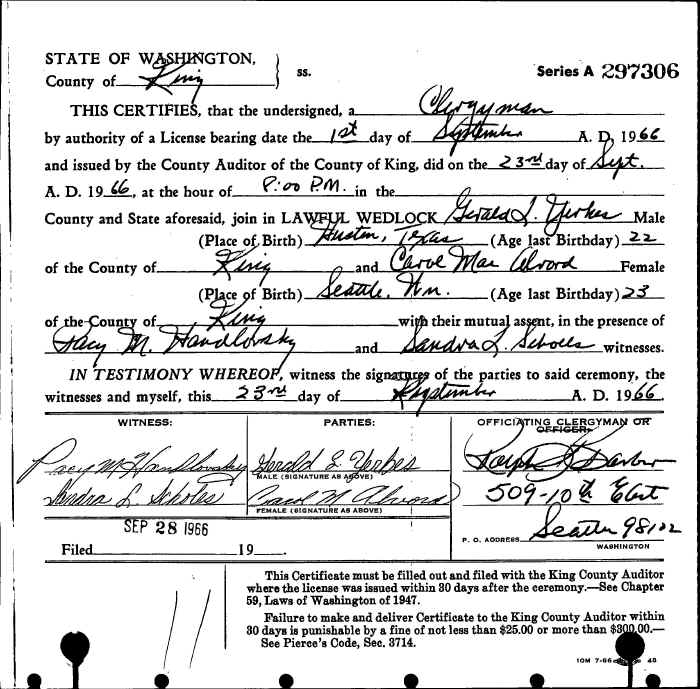 STATE OF WASHINGTON,
County of King ss. Series A 297306
THIS CERTIFIES, that the undersigned, a Clergyman
by authority of a License bearing date the 1st day of September A. D. 1966
and issued by the County Auditor of the County of King, did on the 23rd day of Sept.
A. D. 1966, at the hour of 8:00 P.M. in the
County and State aforesaid, join in LAWFUL WEDLOCK Gerald L. Yerkes Male
(Place of Birth) Huston, Texas (Age last Birthday) 22
of the County of King and Carol Mae Alvord Female
(Place of Birth) Seattle, Wn. (Age last Birthday) 23
of the County of King with their mutual assent, in the presence of
M. Handlovsky and Sandra L. Scholes witnesses.
IN TESTIMONY WHEREOF, witness the signatures of the parties to said ceremony, the
witnesses and myself, this 23rd day of September A. D. 1966
WITNESS: PARTIES: OFFICIATING CLERGYMAN OR OFFICER:
M Handlovsky Gerald L Yerkes Ralph
MALE (SIGNATURE AS ABOVE)
Sandra L. Scholes Carol M. Alvord 509-10th East
FEMALE (SIGNATURE AS ABOVE)
SEP 28 1966 Seattle 98102
P. O. ADDRESS
WASHINGTON
Filed 19
This Certificate must be filled out and filed with the King County Auditor
where the license was issued within 30 days after the ceremony.—See Chapter
59, Laws of Washington of 1947.
Failure to make and deliver Certificate to the King County Auditor within
30 days is punishable by a fine of not less than $25.00 or more than $300.00.—
See Pierce's Code, Sec. 3714.
10M 7-66 48